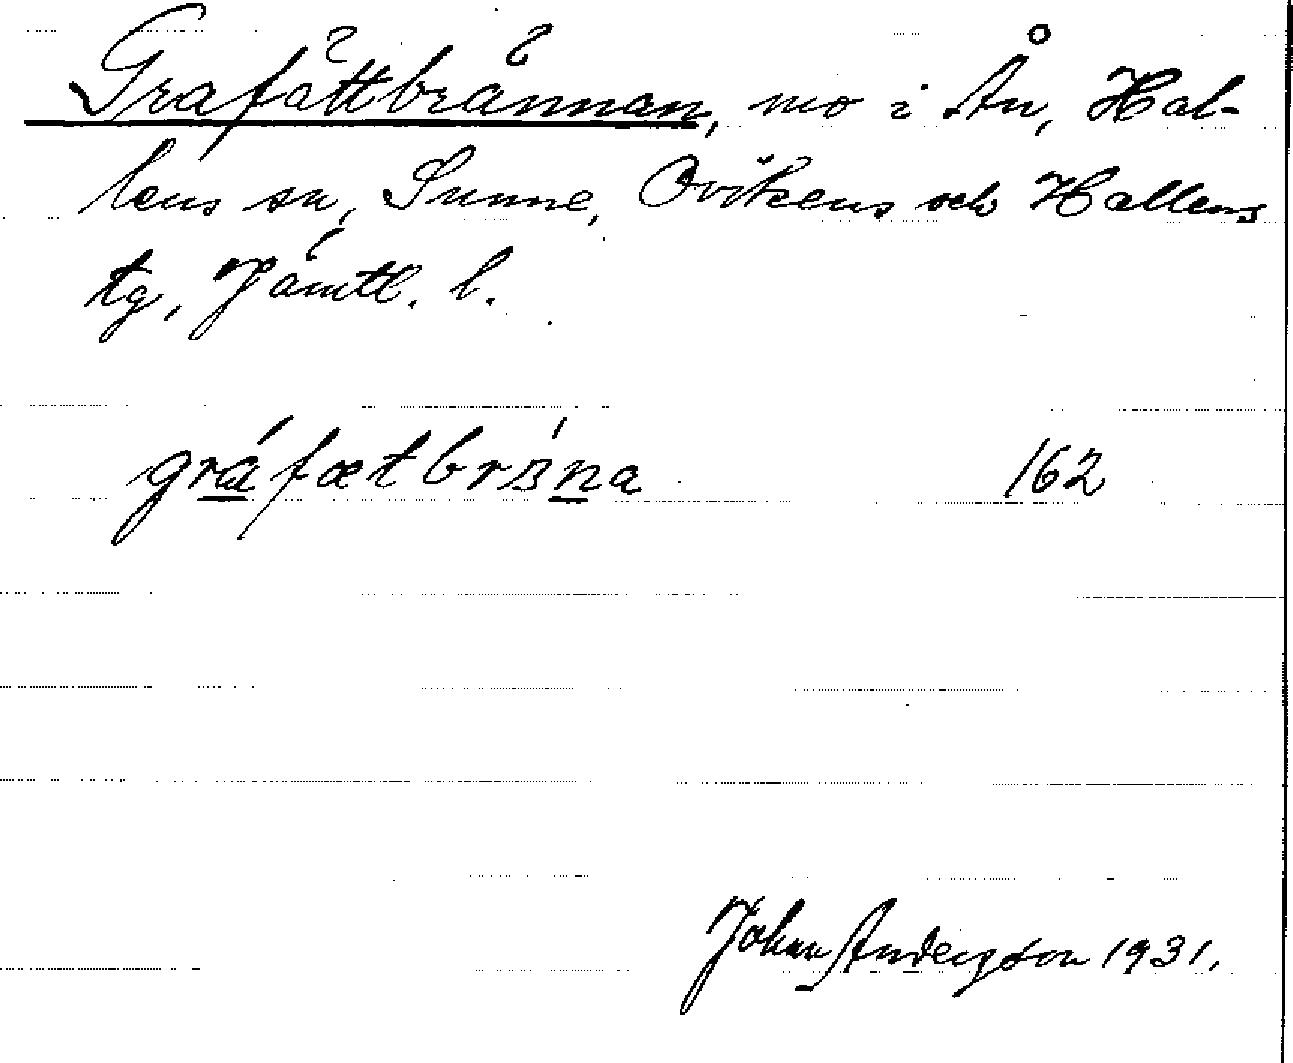 Grafättbrännan, mo i Ån, Hal-
lens sn, Sunne, Ovikens och Hallens
tg, Jämtl. l.
gráfætbrä́na 162
Johan Anderson 1931.